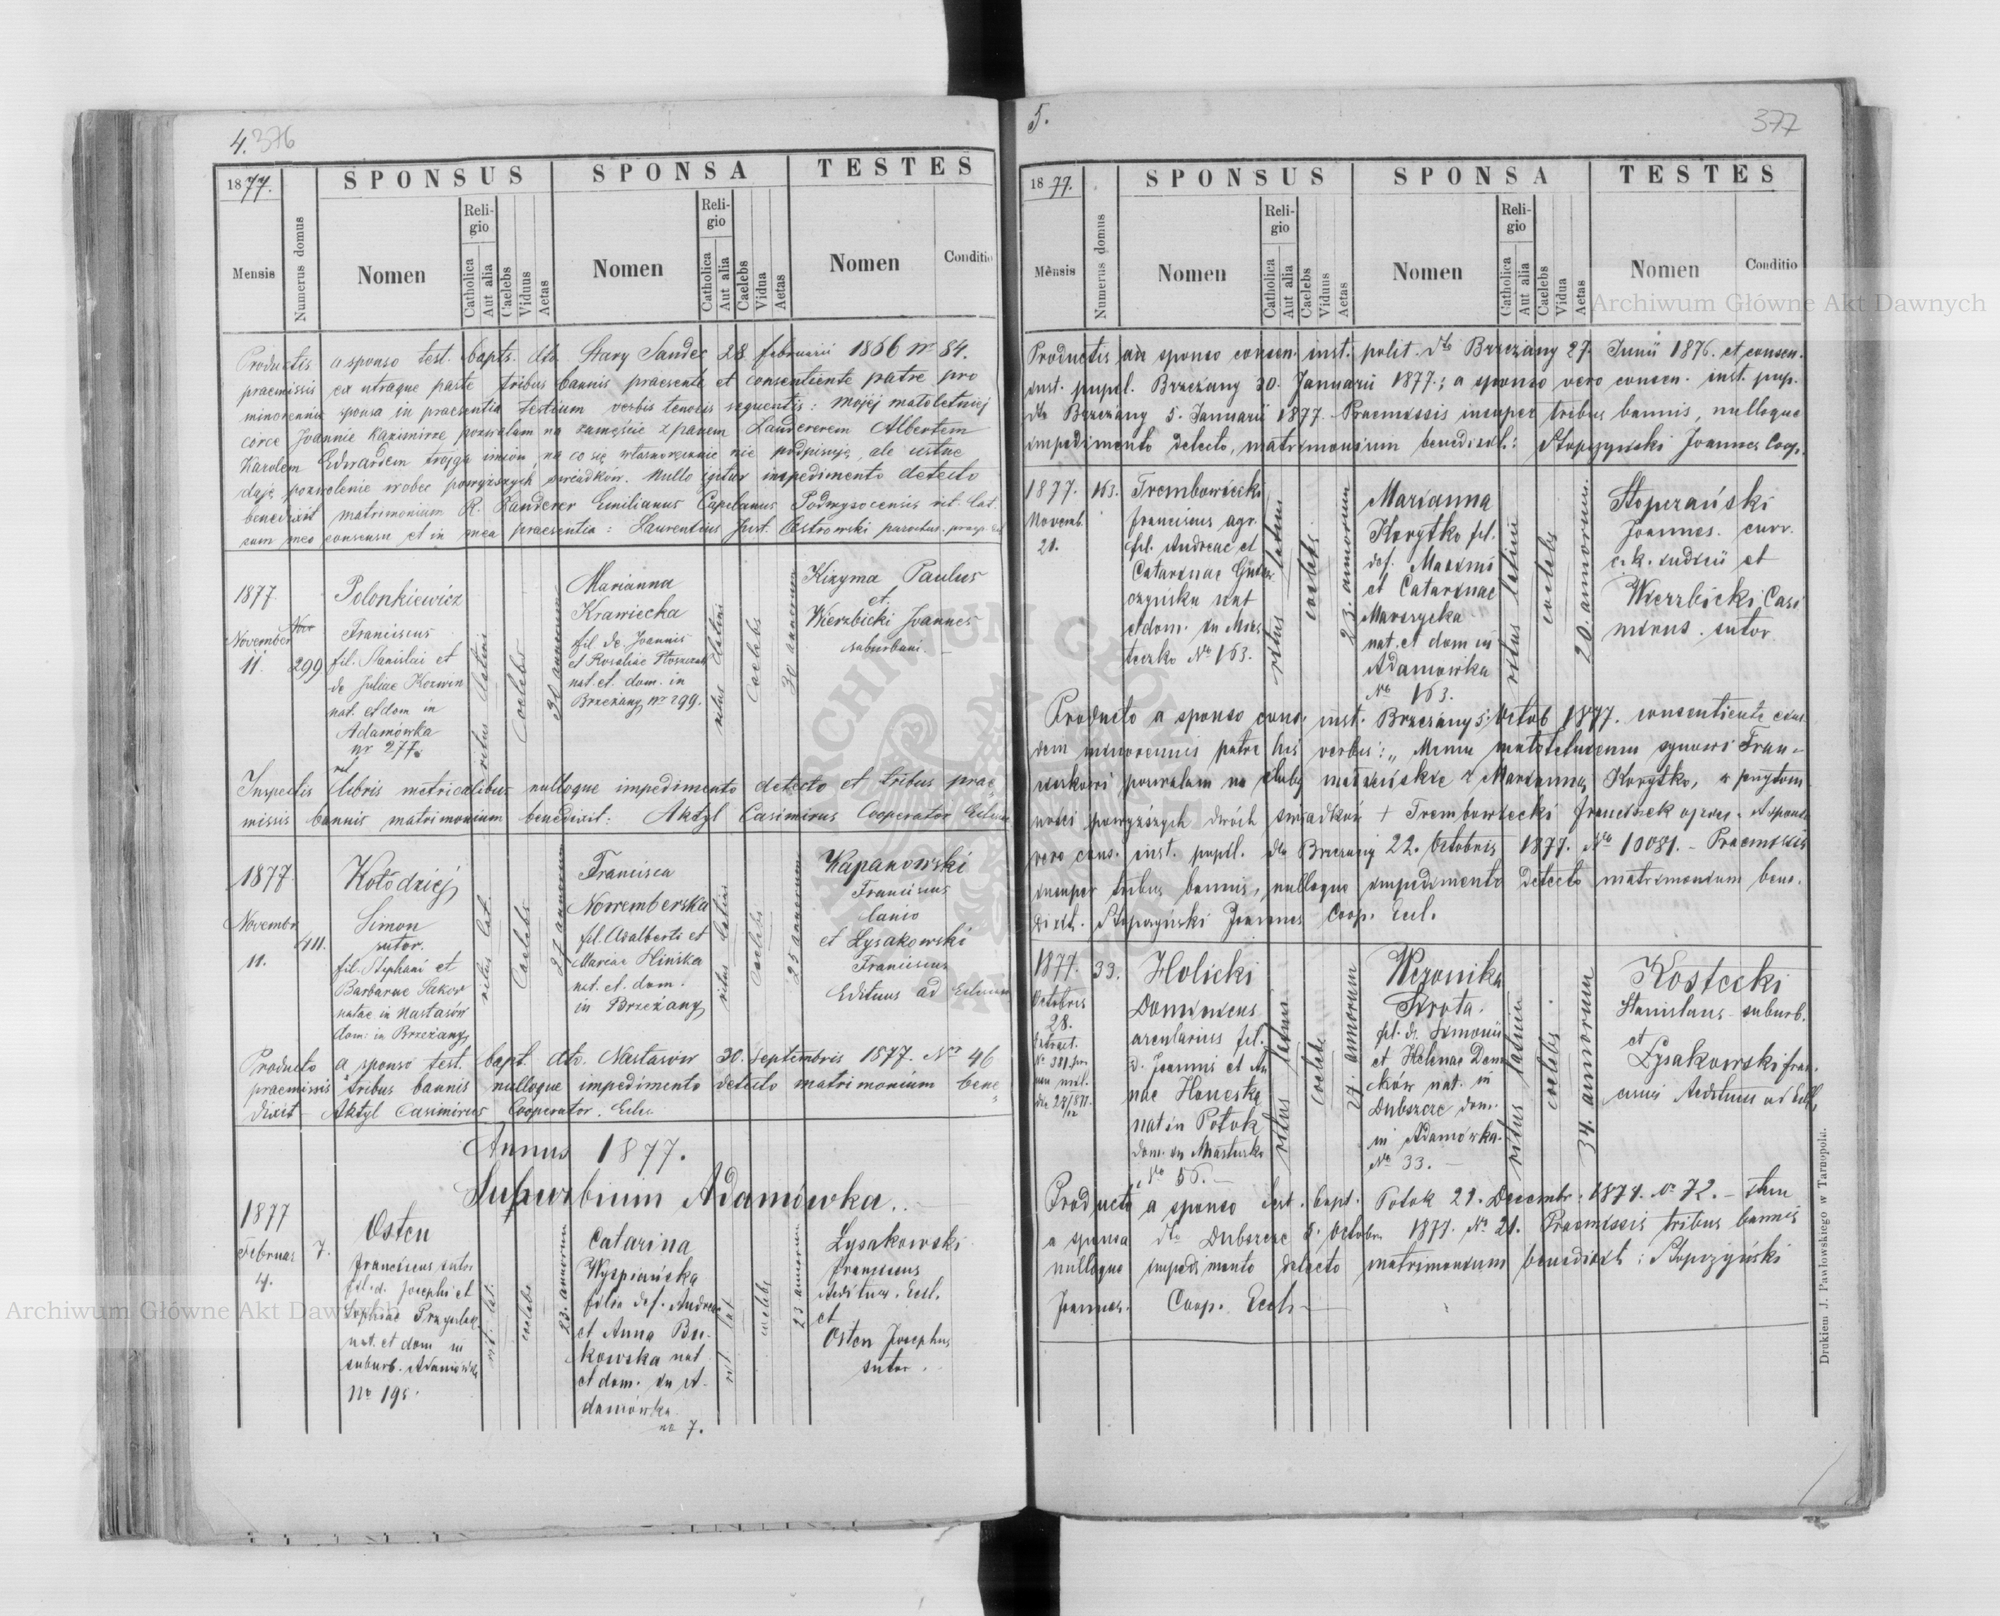 4. 376
1877.
Mensis
Numerus domus
SPONSUS
Nomen
Religio
Catholica
Aut alia
Caelebs
Viduus
Aetas
SPONSA
Nomen
Religio
Catholica
Aut alia
Caelebs
Vidua
Aetas
TESTES
Nomen
Conditio
Productis a sponso test. bapt. dto. Stary Sandec 28 februarii 1866 Nr 84.
praemissis ex utraque parte tribus bannis praesente et consentiente patre pro
minorennis sponsa in praesentia testium verbis tenoris sequentis: Mojej małoletniej
córce Joannie Kazimirze pozwalam na zamęście z panem Landererem Albertem
Karolem Edwardem trojga imion, na co się własnoręcznie nie podpisuję, ale ustne
daję pozwolenie wobec powyższych świadków. Nullo igitur impedimento detecto
benedixit matrimonium R. Landerer Emilianus Capelanus Podwysocensis rit. lat.
cum meo consensu et in mea praesentia: Laurentius Just. Ostrowski parochus
1877
November
11.
299
Polonkiewicz
Franciscus
fil. Stanislai et
de Juliae Korwin
nat. et dom in
Adamówka
nr 277.
ritus latini
Coelebs
30 annorum
Marianna
Krawiecka
fil de Joannis
et Rosaliae
nat. et. dom. in
Brzeżany nr 299.
ritus latini
Coelebs
30 annorum
Kizyma Paulus
et
Wierzbicki Joannes
suburbani.
Inspectis libris metricalibus nulloque impedimento detecto et tribus prae
missis bannis matrimonium benedixit: Aktyl Casimirus Cooperator Eccl.
1877
Novembr
11.
411.
Kołodziej
Simon
sutor.
fil. Stephani et
Barbarae
natae in Nastasów
dom: in Brzeżany
ritus lat.
Coelebs
27 annorum
Francisca
Nowemberska
fil. Adalberti et
Mariae Hlinska
nat. et. dom.
in Brzeżany
ritus latini
Coelebs
25 annorum
Kapanowski
Franciscus
lanio
et Łysakowski
Franciscus
Edituus ad Eccl.
Producto a sponso test. bapt. dto. Nastasów 30. Septembris 1877. Nr 46
praemissis tribus bannis nulloque impedimento detecto matrimonium bene
dixit Aktyl Casimirus Cooperator. Eccl.
Annus 1877.
Suburbium Adamówka.
1877
Februar
4.
7.
Osten
Franciscus sutor
fil. d. Josephi et
Sophiae
nat. et dom in
suburb. Adamówka
No 195.
rit: lat.
coelebs
23. annorum
Catarina
Wyspiańska
filia def. Andreae
et Anna Bu-
kowska nat
et dom. in A-
damówka
no 7.
rit lat.
coelebs
23 annorum
Łysakowski
Franciscus
Aedituus. Eccl.
et
Osten Josephus
sutor.
5.
377
1877.
Mensis
Numerus domus
SPONSUS
Nomen
Religio
Catholica
Aut alia
Caelebs
Viduus
Aetas
SPONSA
Nomen
Religio
Catholica
Aut alia
Caelebs
Vidua
Aetas
TESTES
Nomen
Conditio
Productis a sponso consen. inst. polit. dto Brzeżany 27. Junii 1876. et consen.
inst. pupil. Brzeżany 30. Januarii 1877.; a sponso vero consen. inst. pup.
dto Brzeżany 5. Januarii 1877. Praemissis insuper tribus bannis, nulloque
impedimento detecto, matrimonium benedixit: Stopczyński Joannes Coop.
1877.
Novemb.
21.
163.
Trembowiecki
Franciscus agr.
fil. Andreae et
Catarinae
nat
et dom. in Mias
teczko No 163.
ritus latini
coelebs
23. annorum
Marianna
Korytko fil.
def. Maximi
et Catarinae
nat. et dom in
Adamówka
No 163.
ritus latini
coelebs
20. annorum.
Joannes.
c. k. iudicii et
Wierzbicki Casi
mirus. sutor.
Producto a sponso cons. inst. Brzeżany 5. Octob 1877. consentiente
dem minorennis patre his verbis: „Memu małoletniemu synowi Fran-
ciszkowi pozwalam na śluby małżeńskie z Marianną Korytko, w przytom
ności powyższych dwóch świadków + Trembowiecki Franciszek ojciec. A sponsa
vero cons. inst. pupil. dto Brzeżany 22. Octobris 1877. No 10081. - Praemissis
insuper tribus bannis, nulloque impedimento detecto matrimonium bene-
dixit. Stopczyński Joannes Coop. Eccl.
1877.
Octobris
28.
33.
Holicki
Dominicus
arcularius fil.
d. Joannis et An
nae
nat in Potok
dom. in
No 56.
ritus latini
coelebs
27. annorum
Weronika
Sirota.
fil. d. Simonii
et Helenae Dem
ków nat. in
Dubszcze dom.
in Adamówka.
No 33.
ritus latini
coelebs
34. annorum
Kostecki
Stanislaus suburb.
et
Łysakowski Fran
ciscus Aedituus ad Eccl.
Producto a sponso test. bapt. Potok 21. Decembr. No 72. -
a sponsa dto Dubszcze 8. Octobr. 1877. No 21. Praemissis tribus bannis
nulloque impedimento detecto matrimonium benedixit: Stopczyński
Joannes. Coop. Eccl.
Drukiem J. Pawłowskiego w Tarnopolu.
Archiwum Główne Akt Dawnych
Archiwum Główne Akt Dawnych
ARCHIWUM GŁÓWNE